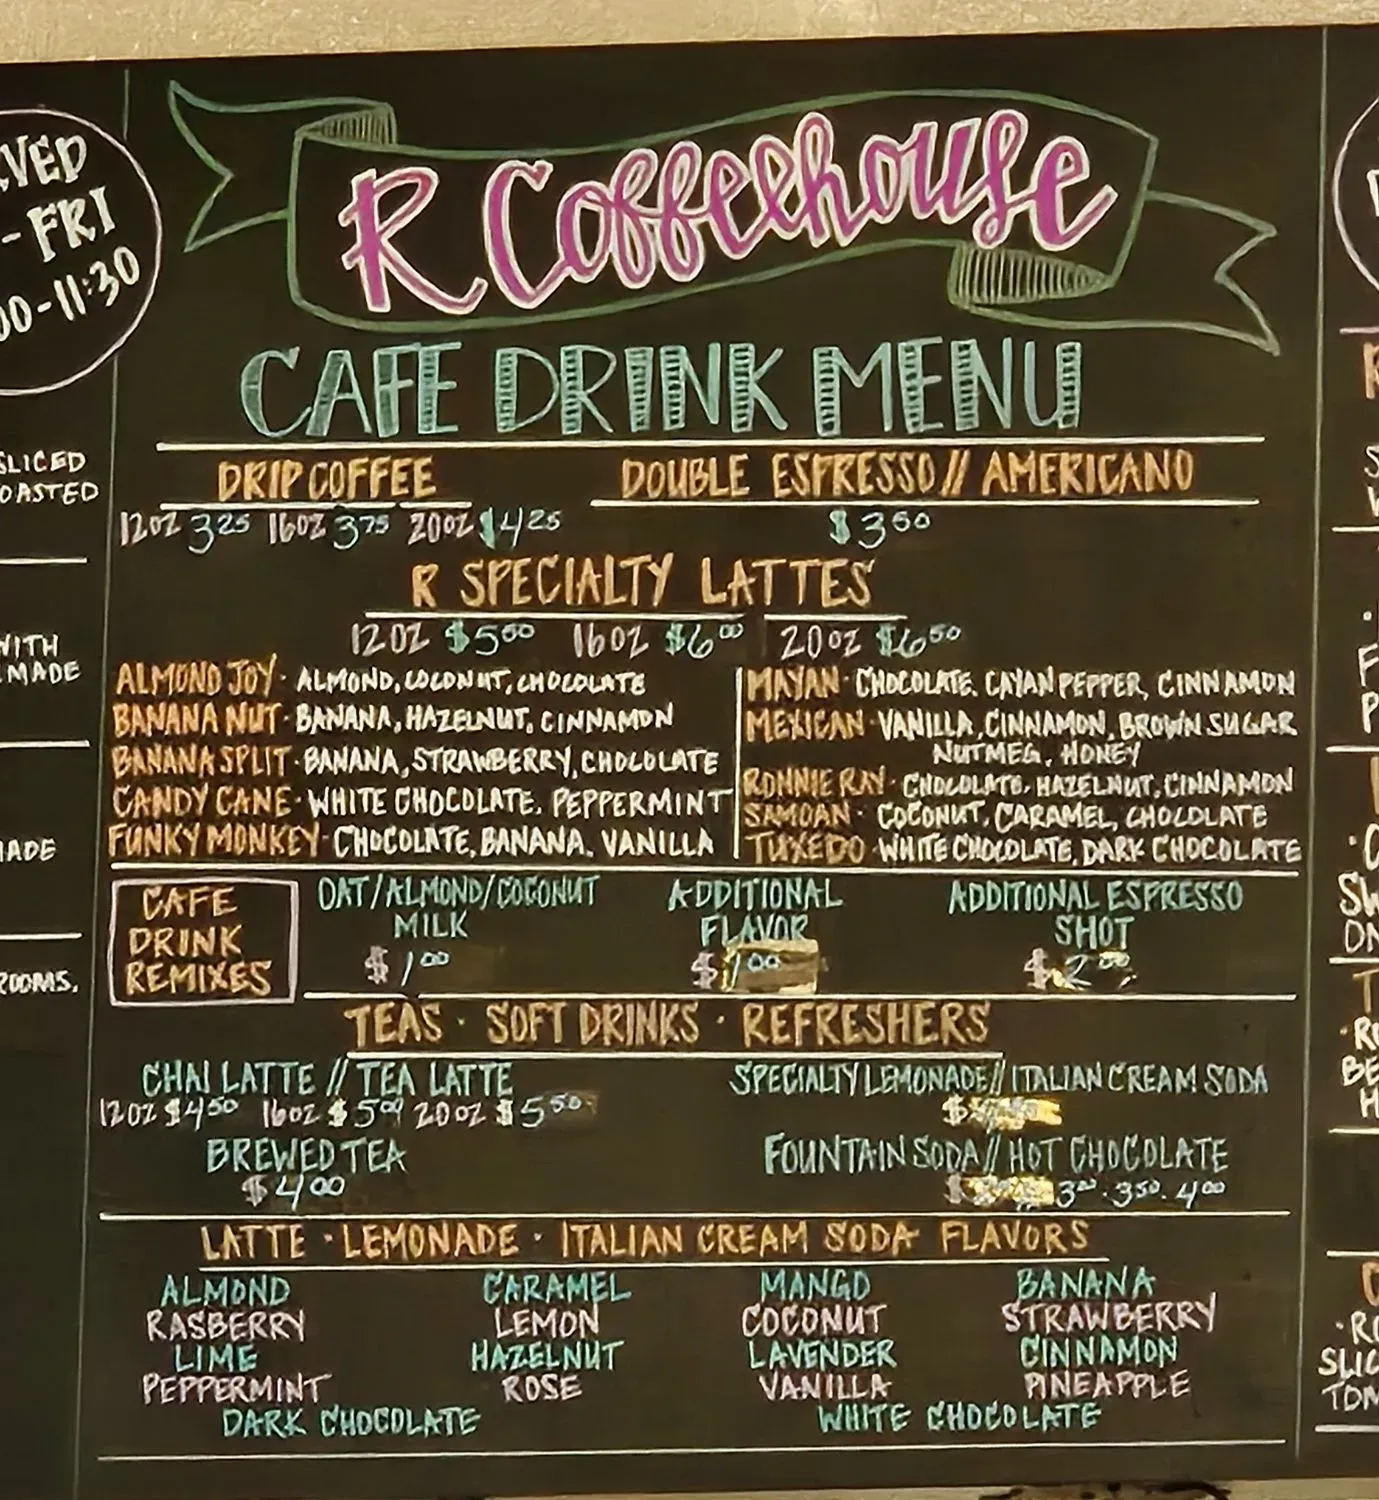 VED
- FRI
00-11:30
SLICED
OASTED
WITH
MADE
ADE
ROOMS.
R Coffeehouse
CAFE DRINK MENU
DRIP COFFEE
12OZ 3 25 16OZ 3 75 20OZ $4 25
DOUBLE ESPRESSO // AMERICANO
$3 50
R SPECIALTY LATTES
12OZ $5 50 16OZ $6 00 20OZ $6 50
ALMOND JOY · ALMOND, COCONUT, CHOCOLATE
BANANA NUT · BANANA, HAZELNUT, CINNAMON
BANANA SPLIT · BANANA, STRAWBERRY, CHOCOLATE
CANDY CANE · WHITE CHOCOLATE, PEPPERMINT
FUNKY MONKEY · CHOCOLATE, BANANA, VANILLA
MAYAN · CHOCOLATE, CAYAN PEPPER, CINNAMON
MEXICAN · VANILLA, CINNAMON, BROWN SUGAR
NUTMEG, HONEY
RONNIE RAY · CHOCOLATE, HAZELNUT, CINNAMON
SAMOAN · COCONUT, CARAMEL, CHOCOLATE
TUXEDO · WHITE CHOCOLATE, DARK CHOCOLATE
CAFE
DRINK
REMIXES
OAT/ALMOND/COCONUT
MILK
$1 00
ADDITIONAL
FLAVOR
$1 00
ADDITIONAL ESPRESSO
SHOT
$2 00
TEAS · SOFT DRINKS · REFRESHERS
CHAI LATTE // TEA LATTE
12OZ $4 50 16OZ $5 00 20OZ $5 50
BREWED TEA
$4 00
SPECIALTY LEMONADE // ITALIAN CREAM SODA
$
FOUNTAIN SODA // HOT CHOCOLATE
$ 3 00 · 3 50 · 4 00
LATTE · LEMONADE · ITALIAN CREAM SODA FLAVORS
ALMOND CARAMEL MANGO BANANA
RASBERRY LEMON COCONUT STRAWBERRY
LIME HAZELNUT LAVENDER CINNAMON
PEPPERMINT ROSE VANILLA PINEAPPLE
DARK CHOCOLATE WHITE CHOCOLATE